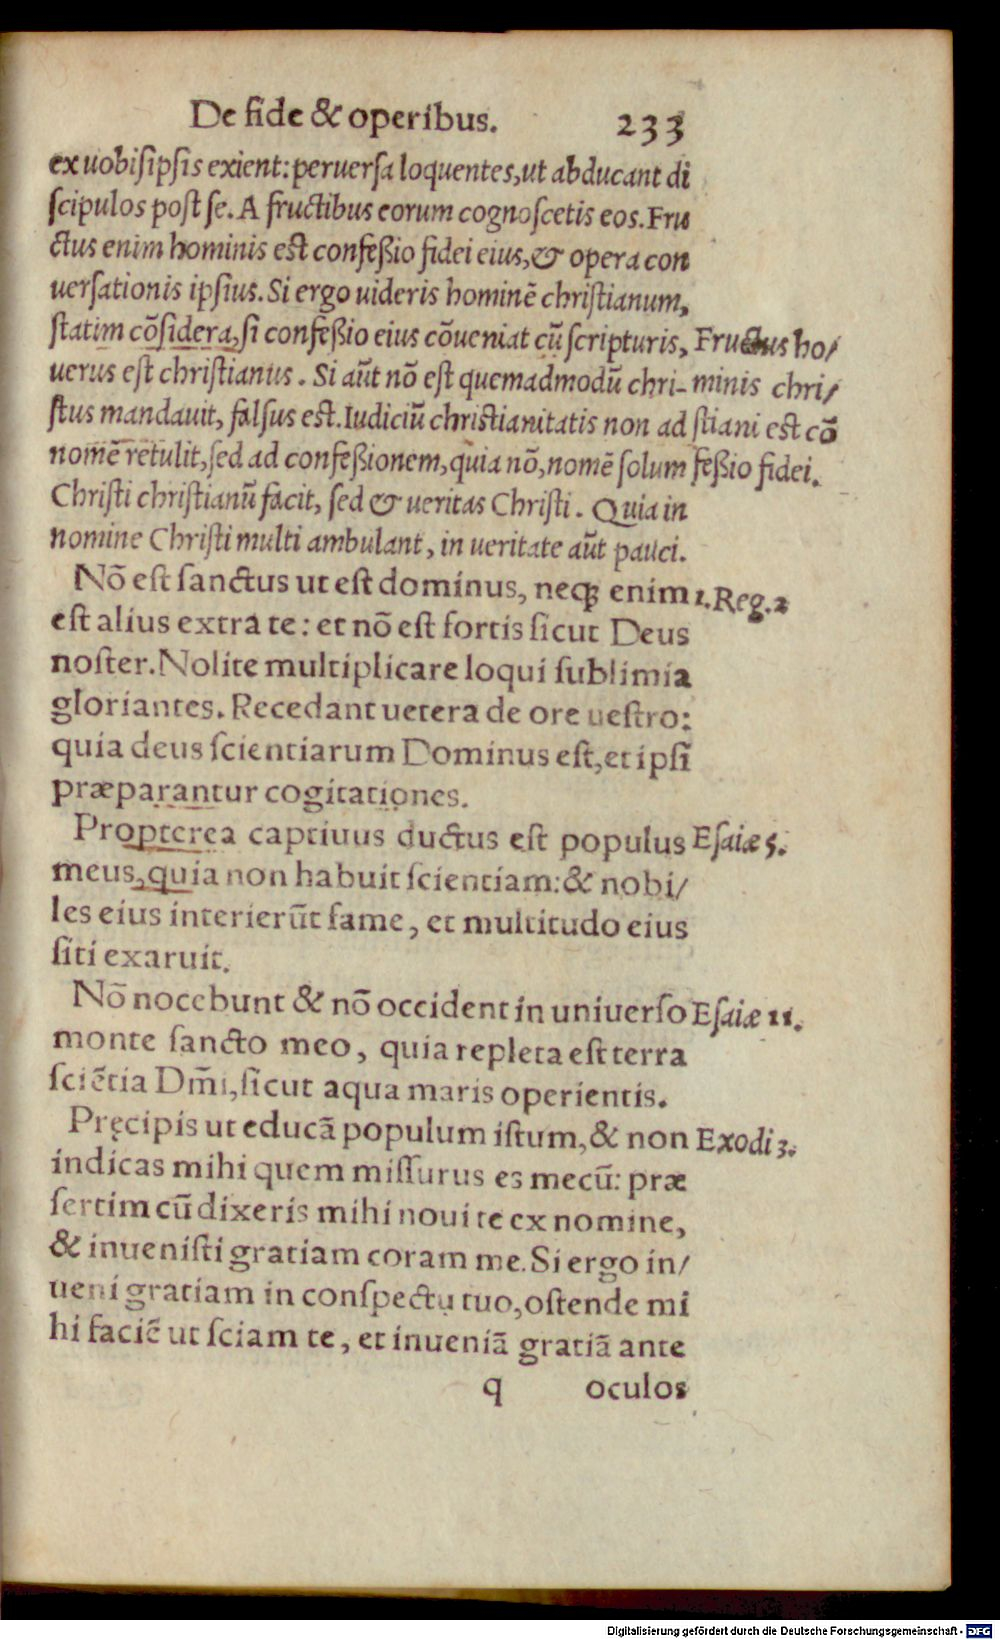 De fide & operibus. 233
ex uobisipsis exient: peruersa loquentes, ut abducant di
scipulos post se. A fructibus eorum cognoscetis eos. Fru
ctus enim hominis est confeßio fidei eius, & opera con
uersationis ipsius. Si ergo uideris hominē christianum,
statim cōsidera, si confeßio eius cōueniat cū scripturis,
Fructus ho/
uerus est christianus. Si aūt nō est quemadmodū chri-
minis chri/
stus mandauit, falsus est. Iudiciū christianitatis non ad
stiani est cō
nomē retulit, sed ad confeßionem, quia nō, nomē solum
feßio fidei.
Christi christianū facit, sed & ueritas Christi. Quia in
nomine Christi multi ambulant, in ueritate aūt pauci.
Nō est sanctus ut est dominus, neqꝫ enim
1. Reg. 2
est alius extra te: et nō est fortis sicut Deus
noster. Nolite multiplicare loqui sublimia
gloriantes. Recedant uetera de ore uestro:
quia deus scientiarum Dominus est, et ipsi
præparantur cogitationes.
Propterea captiuus ductus est populus
Esaiæ 5.
meus, quia non habuit scientiam: & nobi/
les eius interierūt fame, et multitudo eius
siti exaruit.
Nō nocebunt & nō occident in uniuerso
Esaiæ 11.
monte sancto meo, quia repleta est terra
sciētia Dm̄i, sicut aqua maris operientis.
Pręcipis ut educā populum istum, & non
Exodi 3.
indicas mihi quem missurus es mecū: præ
sertim cū dixeris mihi noui te ex nomine,
& inuenisti gratiam coram me. Si ergo in/
ueni gratiam in conspectu tuo, ostende mi
hi faciē ut sciam te, et inueniā gratiā ante
q oculos
Digitalisierung gefördert durch die Deutsche Forschungsgemeinschaft - DFG